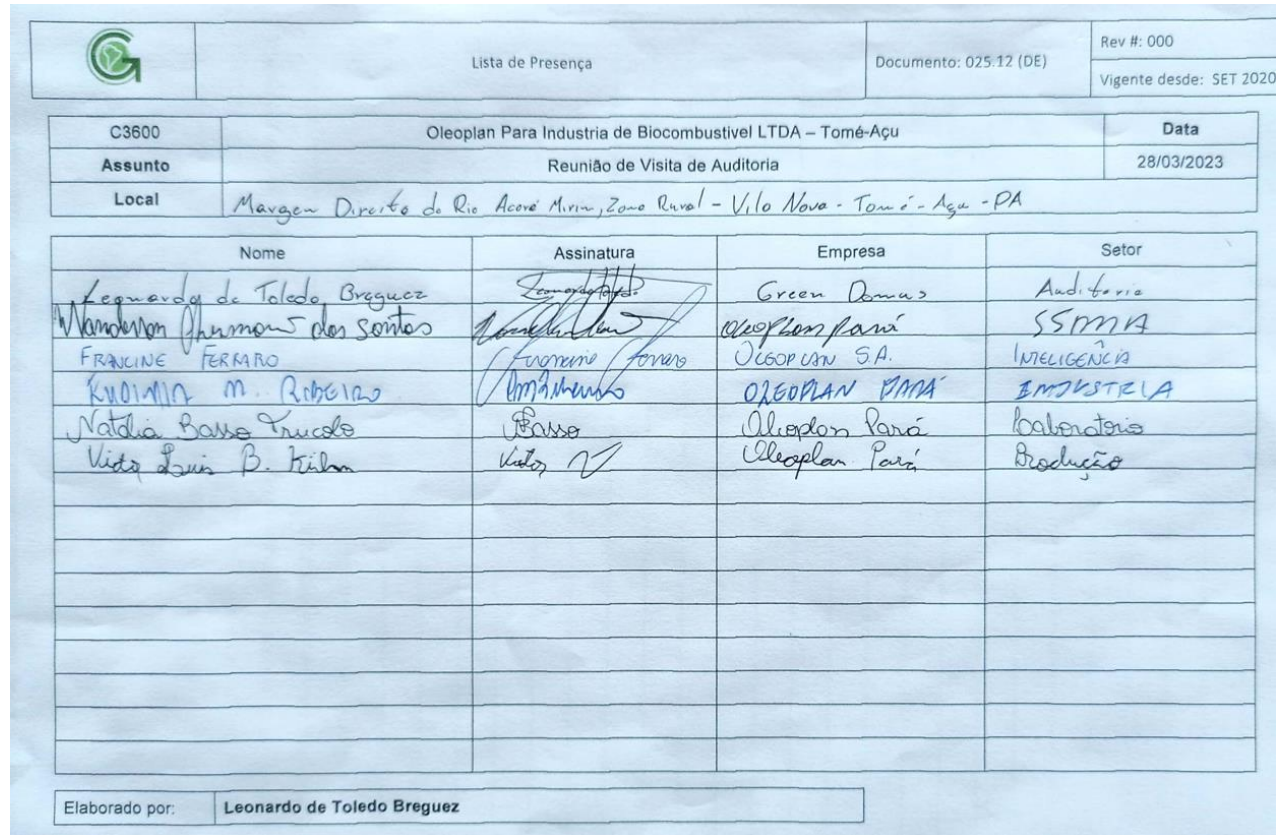 Lista de Presença
Documento: 025.12 (DE)
Rev #: 000
Vigente desde: SET 2020
C3600 Oleoplan Para Industria de Biocombustivel LTDA – Tomé-Açu Data
Assunto Reunião de Visita de Auditoria 28/03/2023
Local Margem Direita do Rio Acará Mirim, Zona Rural - Vila Nova - Tomé-Açu - PA
Nome Assinatura Empresa Setor
Leonardo de Toledo Breguez Green Domus Auditoria
Wanderson dos Santos Oleoplan pará SSMA
FRANCINE FERRARO Francine Ferraro OLEOPLAN S.A. INTELIGÊNCIA
M. RIBEIRO OLEOPLAN PARÁ INDUSTRIA
Natália Basso Trucolo Basso Oleoplan Pará Laboratório
Luis B. Victor Oleoplan Pará Produção
Elaborado por: Leonardo de Toledo Breguez